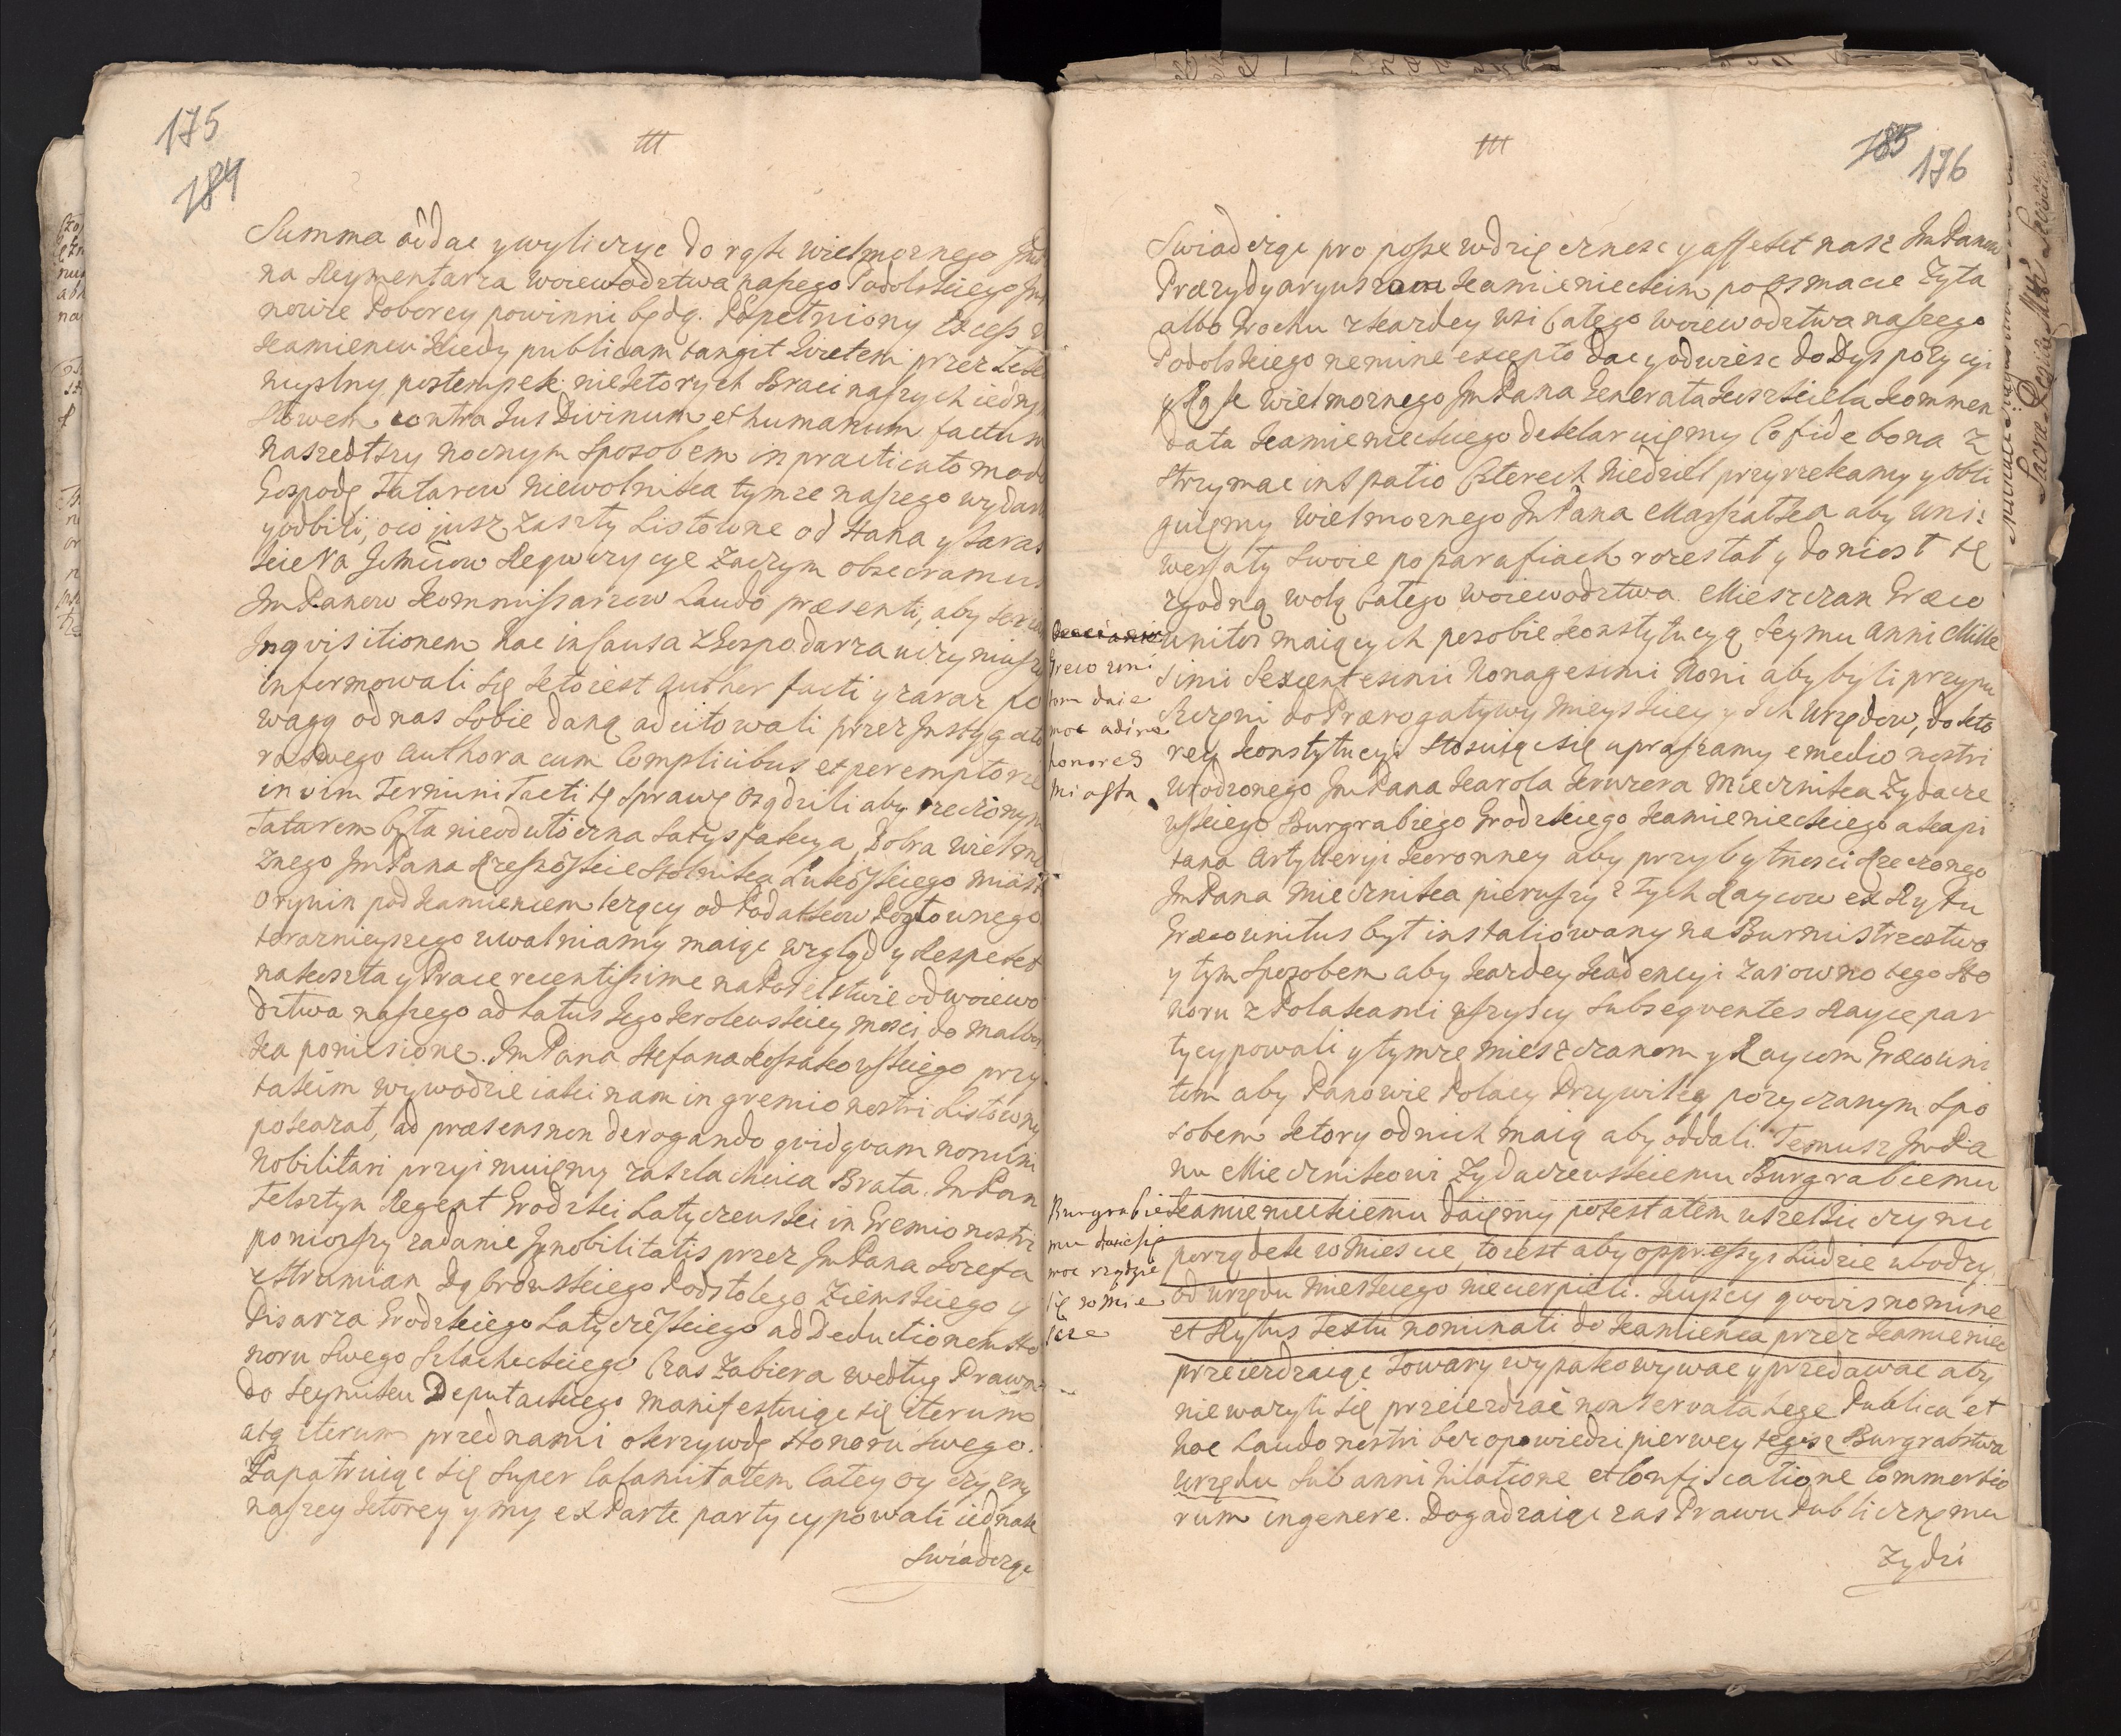 175
184
ttt
Summa oddac y wyliczyc do rąk wielmoznego Jm
na Reymentarza woiewodztwa naszego Podolskiego
nowie Poborcy powinni będą. Popełniony Excess
Kamiencu kiedy publicam tangit kwietem przez
myslny postempek niektorych Braci naszych iednym
słowem contra Jus Divinum et humanum factum
naszedłszy nocnym sposobem inpracticato modo
Gospodę Tatarow niewolnika tymze naszego wydan
y odbili, oco jusz zaszły Listowne od Hana y
Requizycye zaczym obsecramus
Jm Panow Kommissarzow Laudo præsenti, aby
Inqvisitionem hac in Causa z Gospodarza uczyniwszy
informowali się kto iest Author facti y zaraz po
wagą od nas sobie daną adcitowali przez Instygato
ra swego Authora cum Complicibus et peremptorie
in vim Termini Tacti tę sprawę osądzili aby rzeczonym
Tatarom była nieodwłoczna satysfakcya, Dobra wielmo
znego Jm Pana Stolnika miast
Orynin pod Kamiencem lezący od Podatkow Pogłownego
teraznieyszego uwalniamy maiąc wzgląd y Respekt
na koszta y Prace recentissime na Poselstwie od woiewo
dztwa naszego ad Latus Jego Krolewskiey mosci do Malbor
ka poniesione. Jm Pana Stefana Kossakowskiego przy
takim wywodzie iaki nam in gremio nostri Listowny
pokazał, ad præsens non derogando qvidqvam nomini
Nobilitari przyimuięmy za szlachcica Brata. Jm Pan
Telsztyn Regent Grodzki Latyczewski in Gremio nostri
poniozszy zadanie Ignobilitatis przez Jm Pana Jozefa
z Strumian Dąbrowskiego Podstolego Ziemskiego y
Pisarza Grodzkiego Latyczewskiego ad Deductionem Ho
noru swego Szlacheckiego Czas zabiera według Prawa
do Seymiku Deputackiego manifestuiąc się iterum
atq iterum przed nami o krzywdę Honoru swego.
Zapatruiąc się super Calamitatem Całey Oyczyzny
naszey ktorey y my ex Parte partycypowali iednak
swiadcząc
ttt
185
176
Swiadcząc pro posse wdzięcznosc y affekt nasz Jm Panom
Præzydyaryuszom Kamienieckim po osmacce Zyta
albo Grochu z kazdey wsi Całego woiewodztwa naszego
Podolskiego nemine excepto dac y odwiesc do Dyspozycyi
y Rąk wielmoznego Jm Pana Generała Kommen
data Kamienieckiego deklaruięmy Co fide bona
strzymac in spatio Czterech Niedziel przyrzekamy y obli
guięmy wielmoznego Jm Pana Marszałka aby Uni:
wersały swoie po parafiach rozesłał y doniosł tę
zgodną wolą Całego woiewodztwa. Mieszczan Græco
unitos maiących po sobie Konstytucyą Seymu Anni Mille
simi Sexcentesimi Nonagesimi Noni aby byli przypu
szczeni do Prærogatywy Mieyskiey y Ich Urzędow, do kto
rey Konstytucyi stosuiąc się upraszamy e medio nostri
Urodzonego Jm Pana Karola Miecznika Zydacze
wskiego Burgrabiego Grodzkiego Kamienieckiego a Kapi
tana Artyleryi Koronney aby przy bytnosci Rzeczonego
Jm Pana Miecznika pierwszy z tych Raycow ex Rytu
Græco unitus był installowany na Burmistrzostwo
y tym sposobem aby kazdey Kadencyi zarowno tego Ho
noru z Polakami wszyscy subseqventes Rayce par
tycypowali y tymze mieszczanom y Raycom Græcouni
tom aby Panowie Polacy Przywiley pozyczanym spo
sobem ktory od nich maią aby oddali. Temusz Jm Pa
nu Miecznikowi Zydaczewskiemu Burgrabiemu
Kamienieckiemu daięmy potestatem wszelki czynic
porządek w Miescie, to iest aby oppressyi Ludzie ubodzy
od urzędu Mieskiego niecierpieli. Kupcy qvovis nomine
et Rytus Textu nominati do Kamienca przez Kamieniec
przeiezdzaiąc Towary wypakowywac y przedawac aby
nie wazyli się przeiezdzac non servata Lege Publica et
hoc Laudo nostri bez opowiedzi pierwey tegosz Burgrabstwa
Urzędu sub annihilatione et Confiscatione Commercio
rum in genere. Dogadzaiąc zas Prawu Publicznęmu
Zydzi
Greco uni
tom daie
moc adire
honores
miasta
Burgrabie
mu daie się
moc rządzie
się w mie
scie